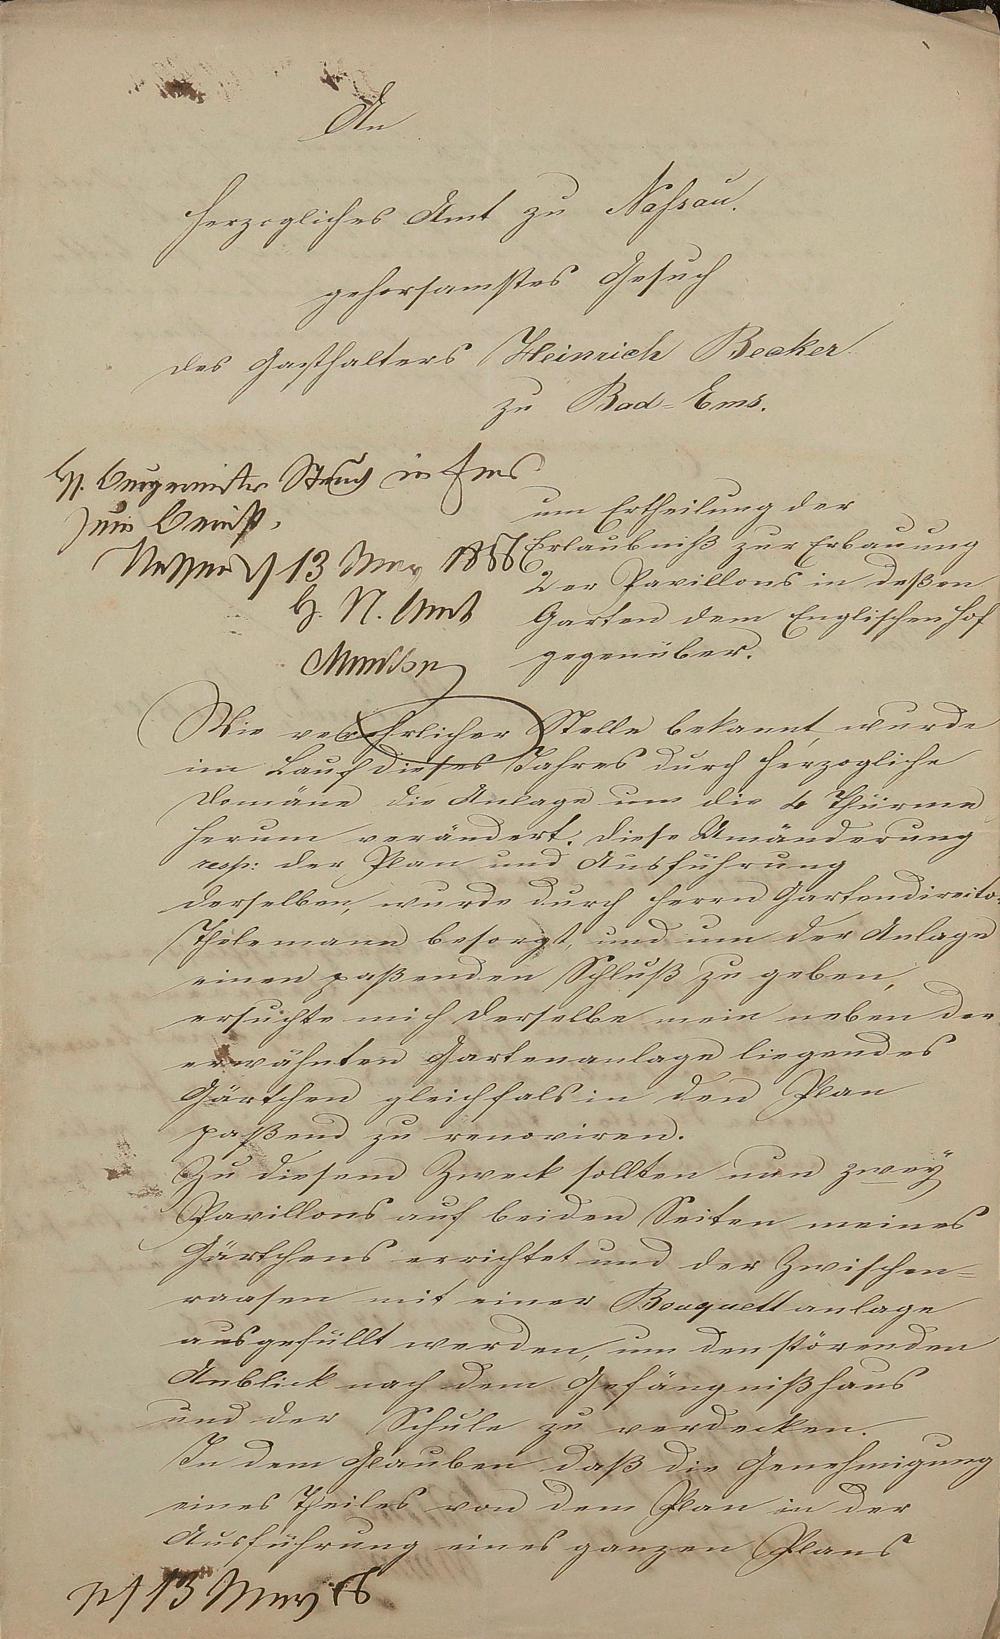 An
Herzogliches Amt zu Naßau.
gehorsamstes Gesuch
des Gasthalters Heinrich Becker
zu Bad-Ems.
H. Burgermeister in Ems
zum Bericht.
Nassau d 13 May 1856
H. N. Amt
um Ertheilung der
Erlaubniß zur Erbauung
2er Pavillons in deßen
Garten dem Englischen Hof
gegenüber.
Wie verehrlicher Stelle bekannt, wurde
im Lauf dieses Jahres durch herzogliche
Domäne die Anlage um die 4 Thürme
herum verändert. Diese Umänderung
resp: der Plan und Ausführung
derselben, wurde durch Herrn Gartendirector
Thelemann besorgt, und um der Anlage
einen paßenden Schluß zu geben,
ersuchte mich derselbe mein neben der
erwähnten Gartenanlage liegendes
Gärtchen gleichfals in den Plan
paßend zu renoviren.
Zu diesem Zweck sollten nun zwey
Pavillons auf beiden Seiten meines
Gärtchens errichtet und der Zwischen-
raasen mit einer Bouquettanlage
ausgefüllt werden, um den störenden
Anblick nach dem Gefängnißhaus
und der Schule zu verdecken.
In dem Glauben daß die Genehmigung
eines Theiles von dem Plan in der
Ausführung eines ganzen Plans
13 May 56